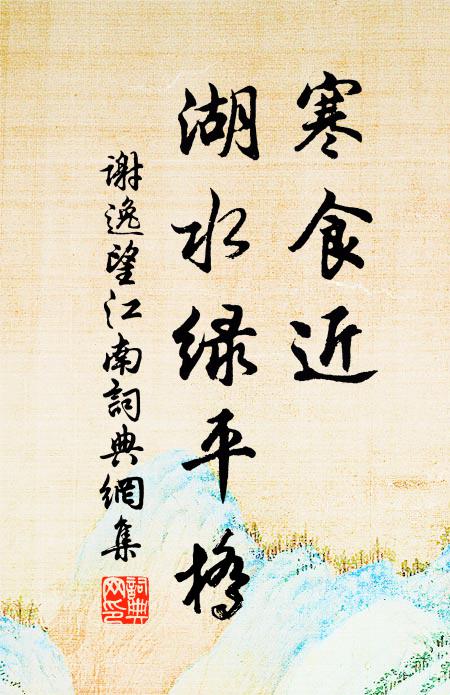 寒食近
湖水绿平橋
謝逸望江南詞典網集
詞典网印